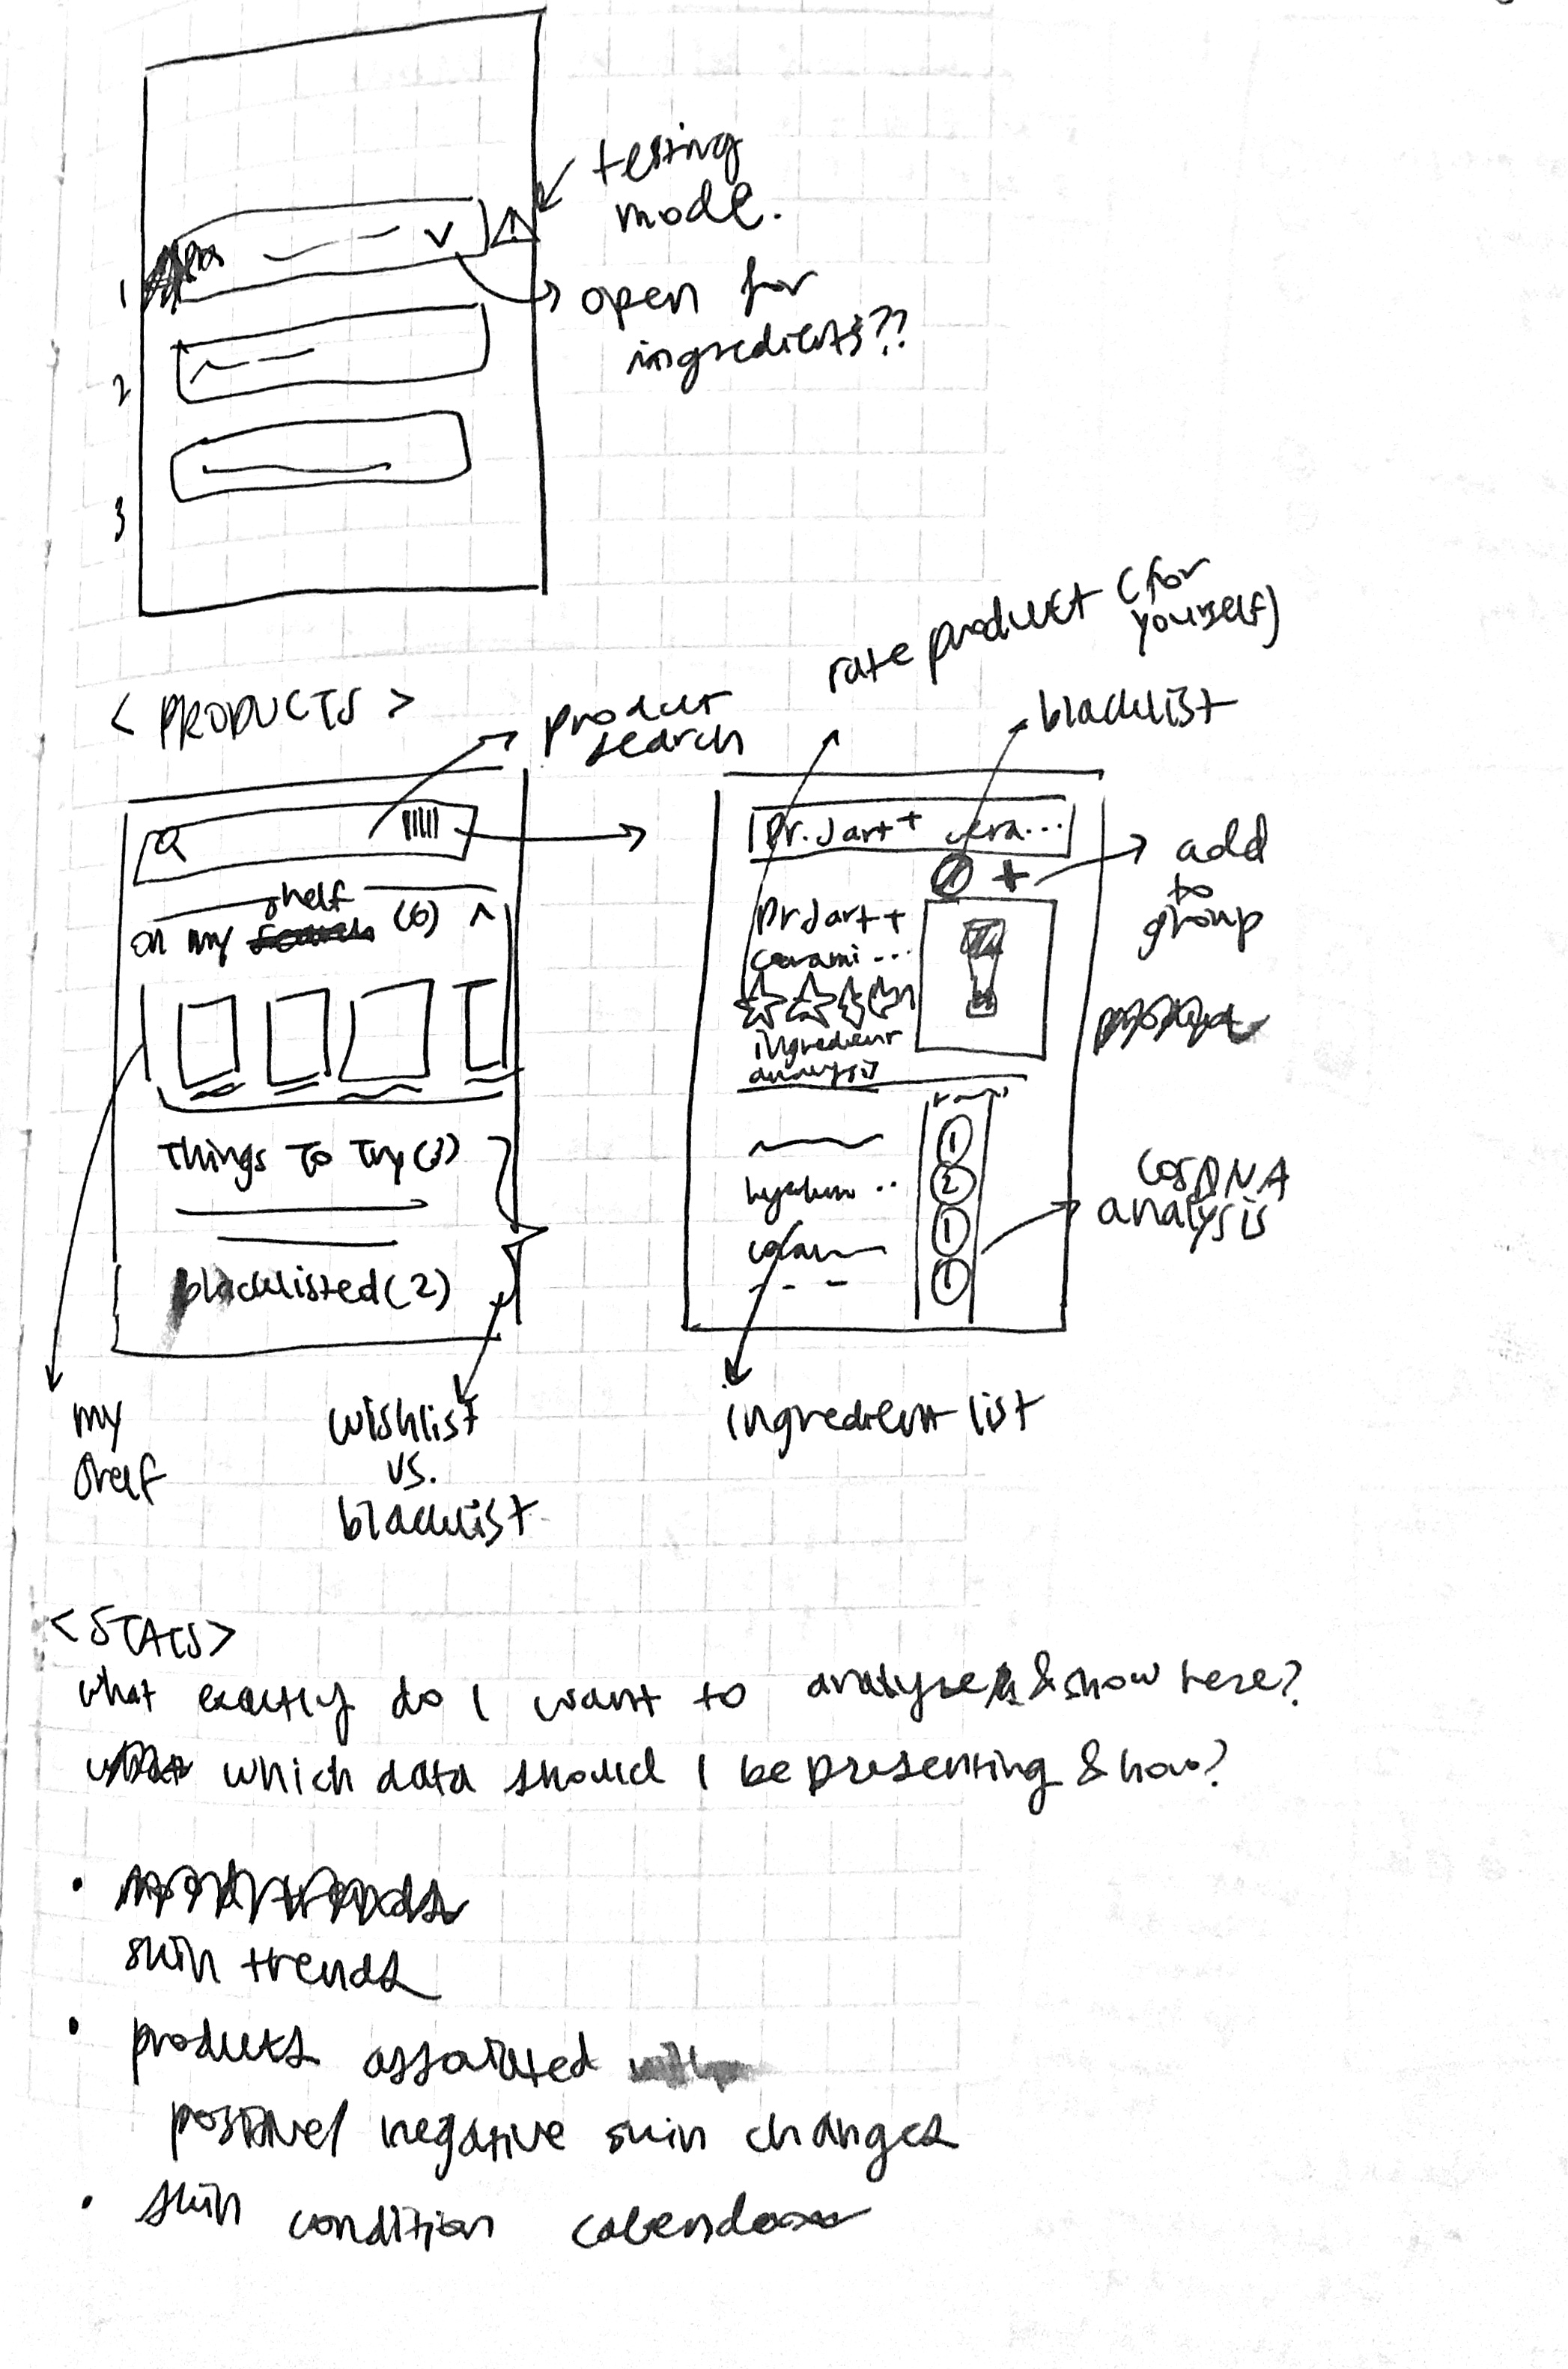 testing
mode.
1
open for
ingredients??
2
3
rate product (for
yourself)
< PRODUCTS >
product
search
blacklist
Dr. Jart+ cera...
add
to
group
shelf
on my (6) ^
Dr Jart+
cerami...
ingredient
analysis
Things To Try (3)
1
2
1
1
COSDNA
analysis
blacklisted (2)
my
shelf
wishlist
vs.
blacklist
ingredient list
<STATS>
what exactly do I want to analyse & show here?
which data should I be presenting & how?
•
skin trends
• products associated with
positive/negative skin changes
• skin condition calendar